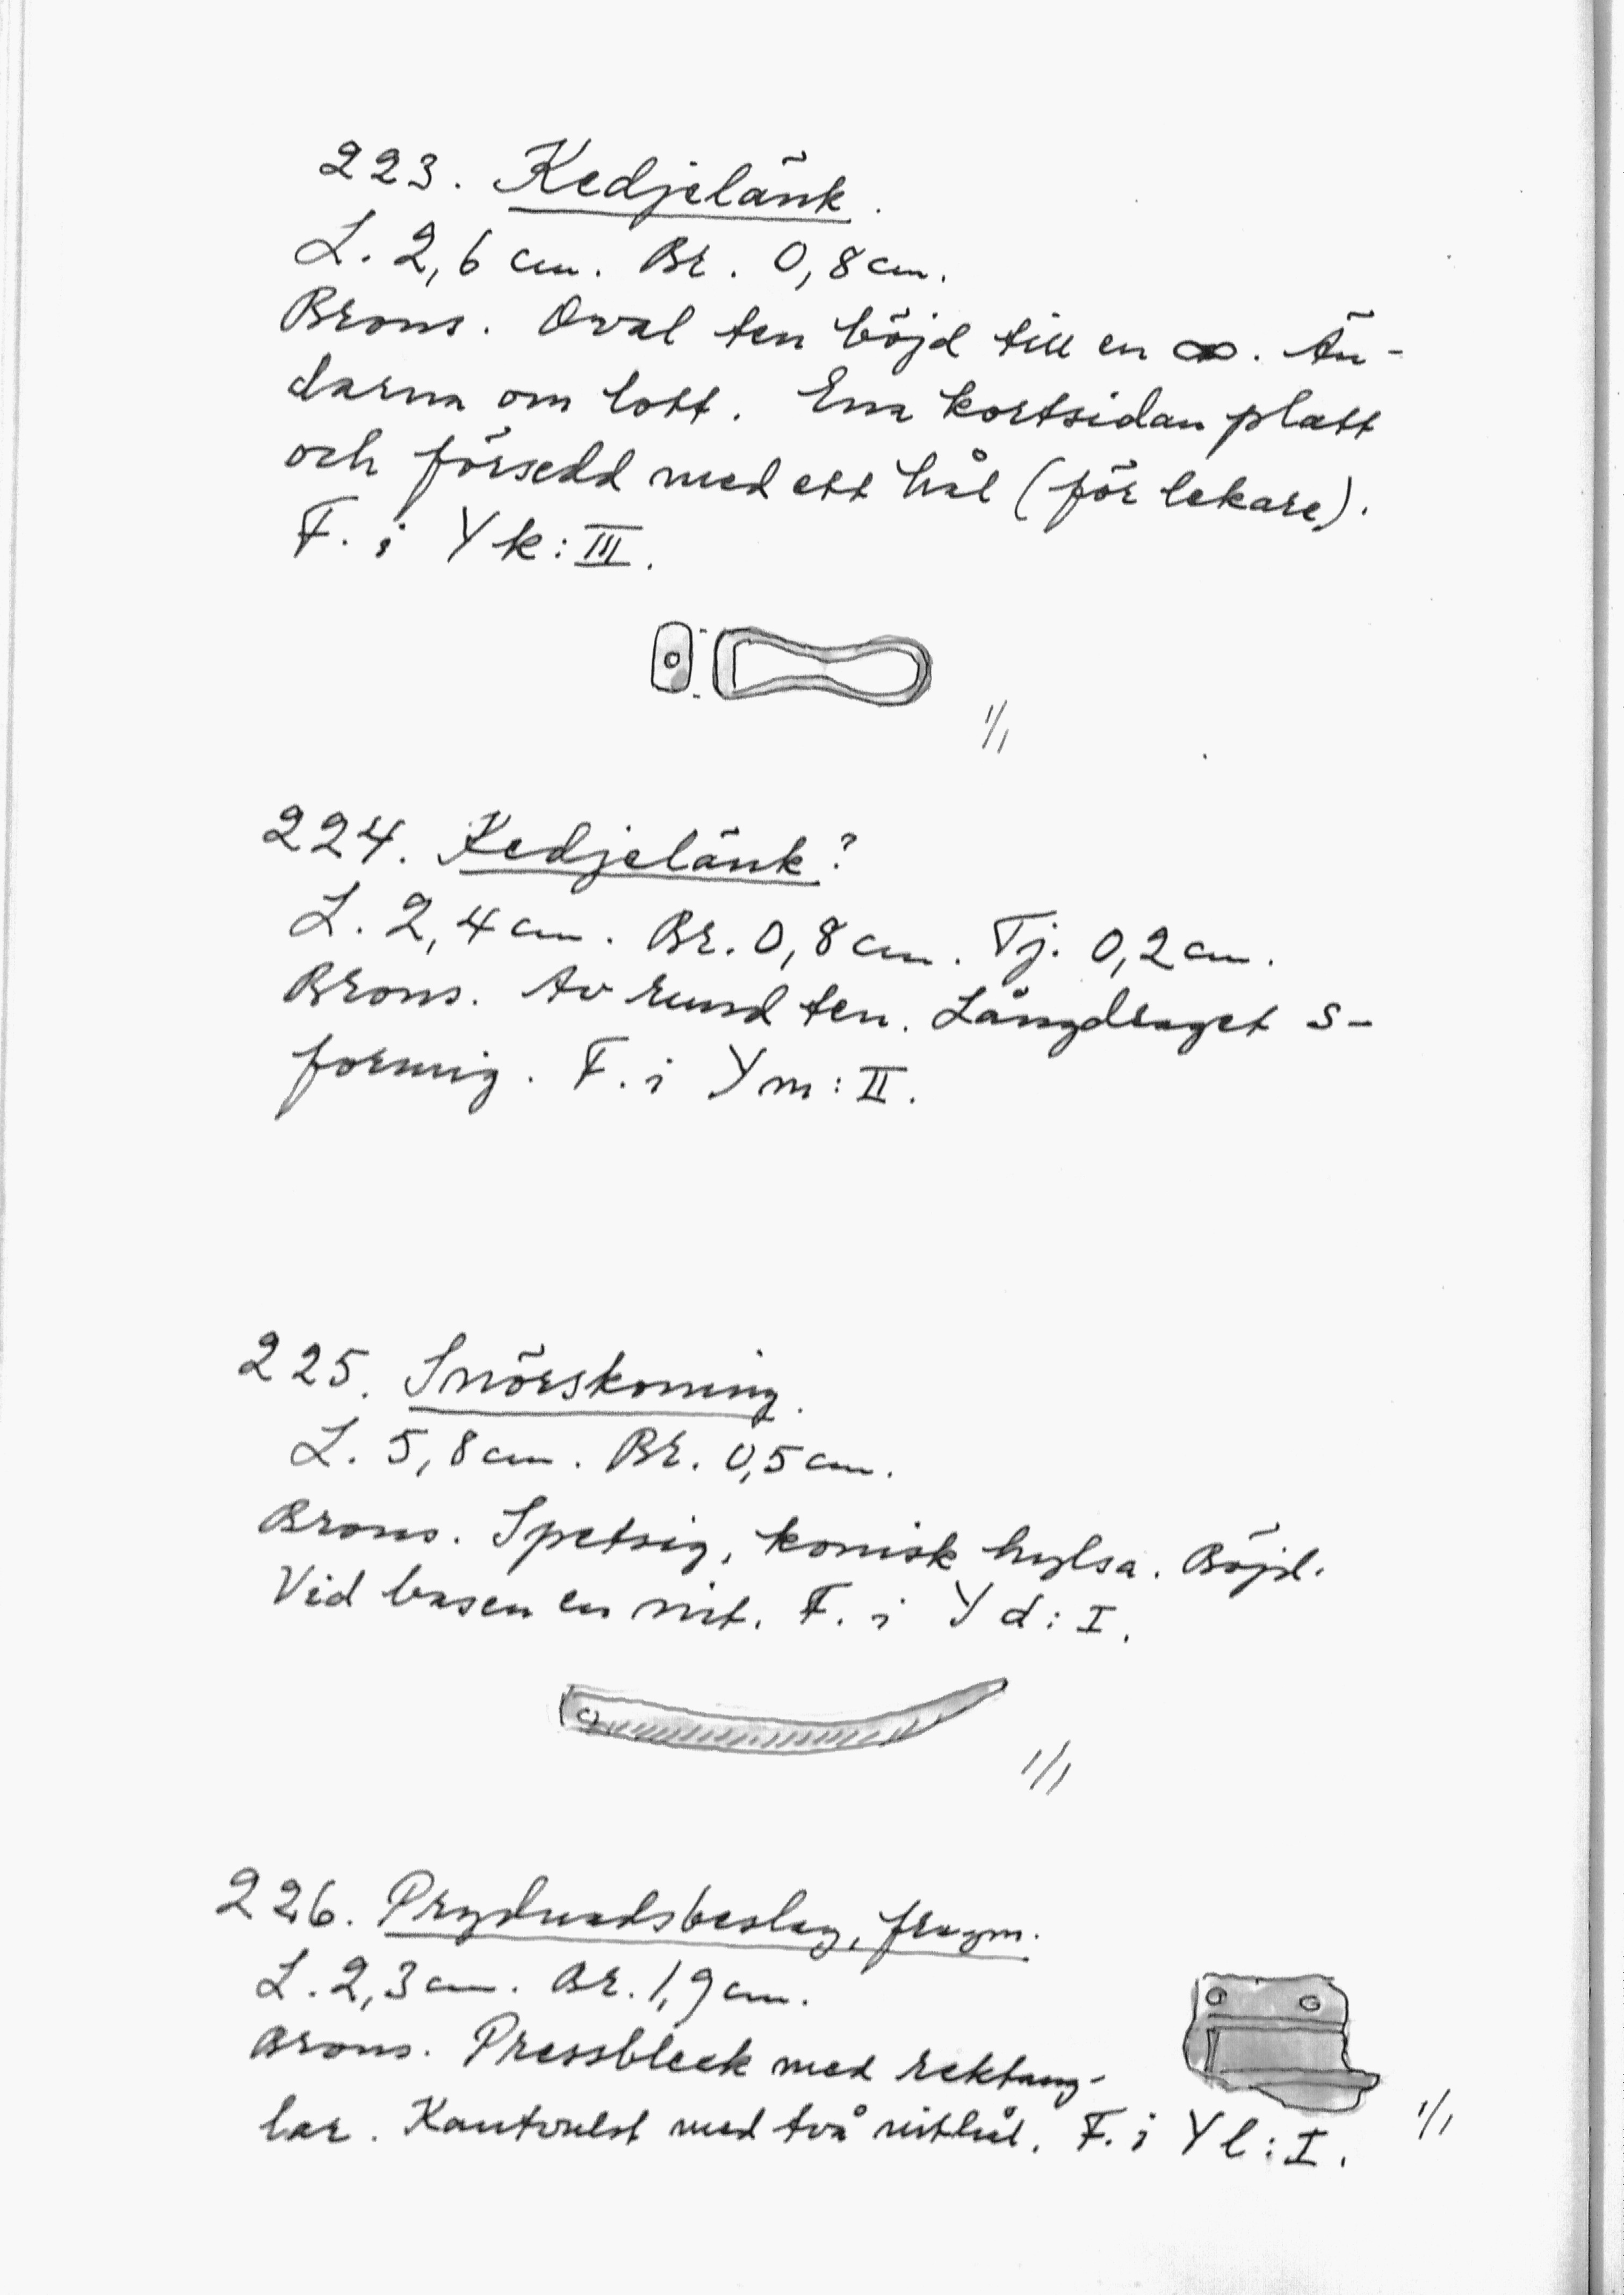 223. Kedjelänk.
L. 2,6 cm. Br. 0,8 cm.
Brons. Oval ten böjd till en ∞. Än-
darna om lott. Ena kortsidan platt
och försedd med ett hål (för lekare).
F. i Yk: III.
1/1
224. Kedjelänk?
L. 2,4 cm. Br. 0,8 cm. Tj. 0,2 cm.
Brons. Av rund ten. Långdraget s-
formig. F. i Ym: II.
225. Snörskoning.
L. 5,8 cm. Br. 0,5 cm.
Brons. Spetsig, konisk hylsa. Böjd.
Vid basen en nit. F. i Yd: I.
1/1
226. Prydnadsbeslag, fragm.
L. 2,3 cm. Br. 1,9 cm.
Brons. Pressbleck med rektang-
lar. Kantvulst med två nithål. F. i Yl: I.
1/1